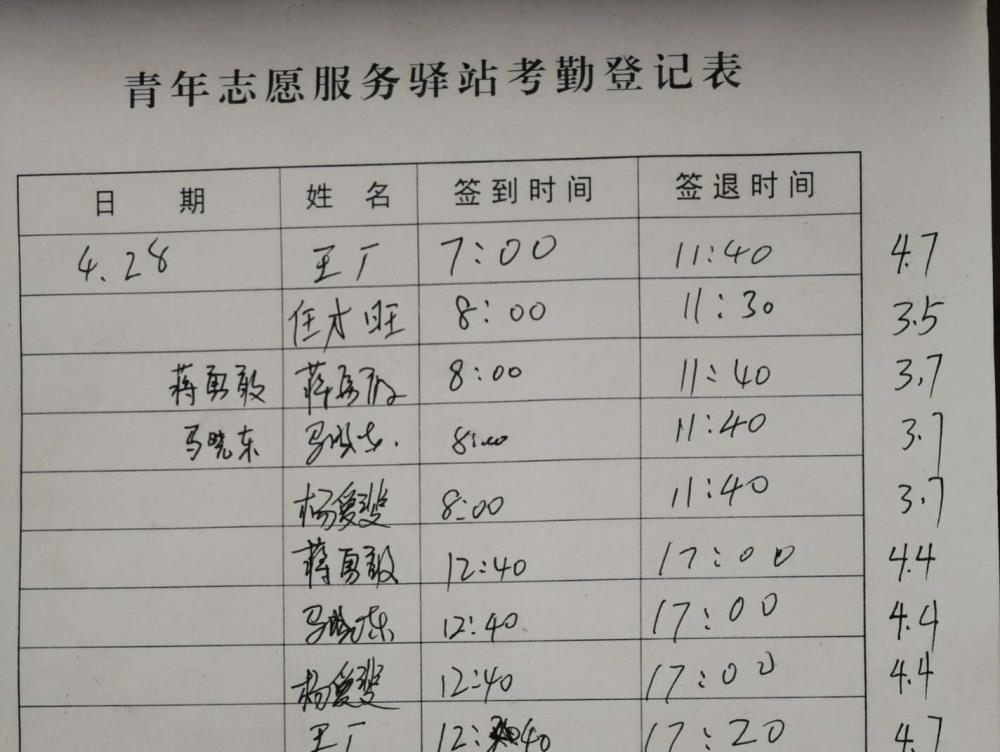 青年志愿服务驿站考勤登记表
日 期 姓 名 签到时间 签退时间
4.28 王丁 7:00 11:40 4.7
任才旺 8:00 11:30 3.5
蒋勇敢 蒋勇敢 8:00 11:40 3.7
马晓东 马晓东. 8:00 11:40 3.7
杨爱斐 8:00 11:40 3.7
蒋勇敢 12:40 17:00 4.4
马晓东 12:40 17:00 4.4
杨爱斐 12:40 17:00 4.4
王丁 12:40 17:20 4.7